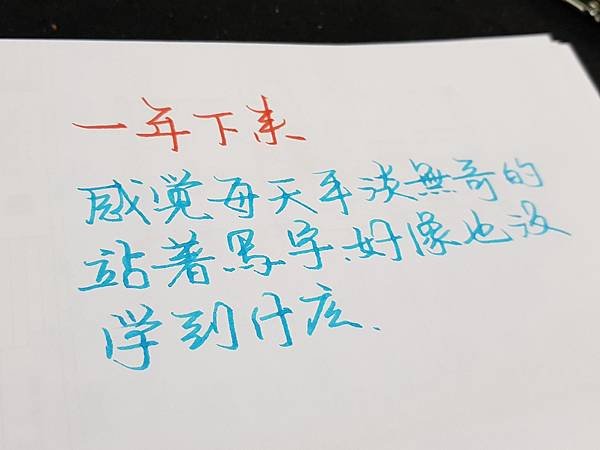 一年下来
感觉每天平淡無奇的
站著寫字、好像也没
学到什広、